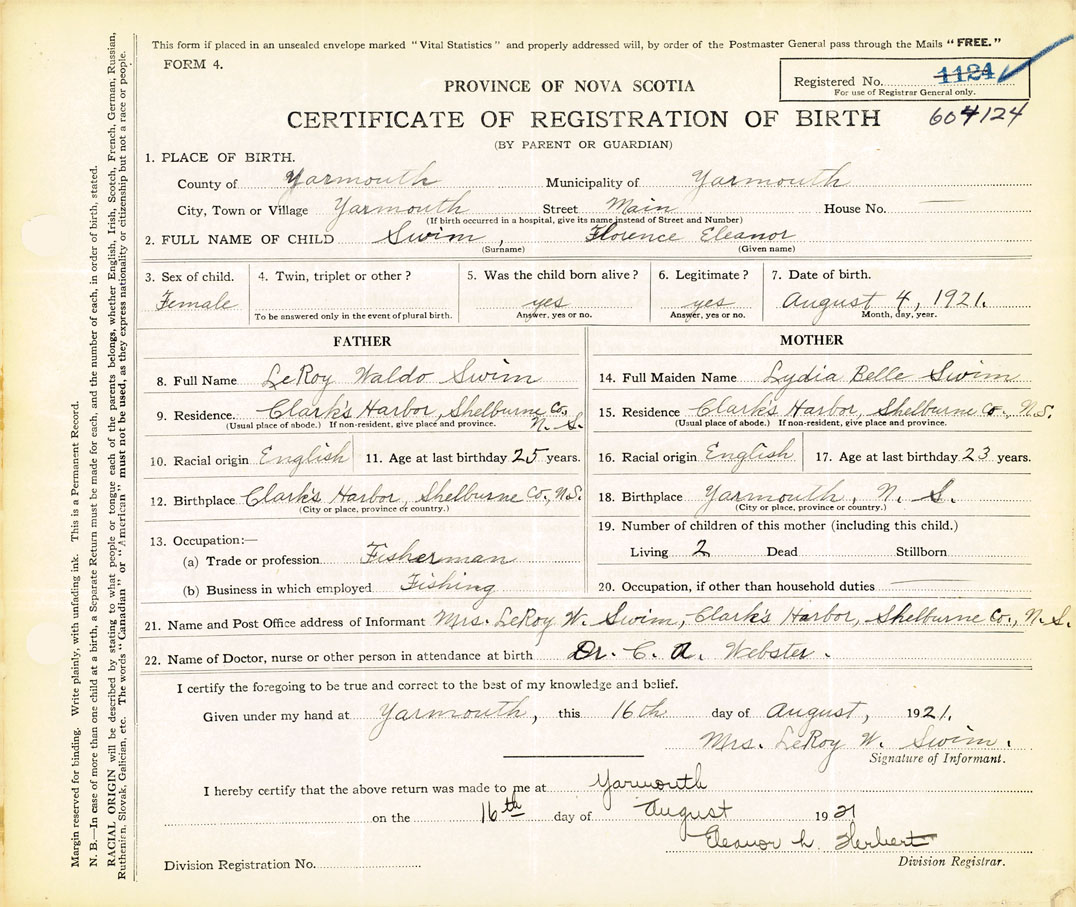 This form if placed in an unsealed envelope marked "Vital Statistics" and properly addressed will, by order of the Postmaster General pass through the Mails "FREE."
FORM 4.
Registered No. 1124
For use of Registrar General only.
604124
PROVINCE OF NOVA SCOTIA
CERTIFICATE OF REGISTRATION OF BIRTH
(BY PARENT OR GUARDIAN)
1. PLACE OF BIRTH.
County of Yarmouth Municipality of Yarmouth
City, Town or Village Yarmouth Street Main House No. —
(If birth occurred in a hospital, give its name instead of Street and Number)
2. FULL NAME OF CHILD Swim, Florence Eleanor
(Surname) (Given name)
3. Sex of child. 4. Twin, triplet or other? 5. Was the child born alive? 6. Legitimate? 7. Date of birth.
Female yes yes August 4, 1921.
To be answered only in the event of plural birth. Answer, yes or no. Answer, yes or no. Month, day, year.
FATHER
8. Full Name LeRoy Waldo Swim
9. Residence. Clark's Harbor, Shelburne Co., N. S.
(Usual place of abode.) If non-resident, give place and province.
10. Racial origin English 11. Age at last birthday 25 years.
12. Birthplace Clark's Harbor, Shelburne Co., N.S.
(City or place, province or country.)
13. Occupation:—
(a) Trade or profession Fisherman
(b) Business in which employed Fishing
MOTHER
14. Full Maiden Name Lydia Belle Swim
15. Residence Clark's Harbor, Shelburne Co., N.S.
(Usual place of abode.) If non-resident, give place and province.
16. Racial origin English 17. Age at last birthday 23 years.
18. Birthplace Yarmouth, N. S.
(City or place, province or country.)
19. Number of children of this mother (including this child.)
Living 2 Dead Stillborn
20. Occupation, if other than household duties —
21. Name and Post Office address of Informant Mrs. LeRoy W. Swim, Clark's Harbor, Shelburne Co., N. S.
22. Name of Doctor, nurse or other person in attendance at birth Dr. C. A. Webster.
I certify the foregoing to be true and correct to the best of my knowledge and belief.
Given under my hand at Yarmouth, this 16th day of August, 1921.
Mrs. LeRoy W. Swim.
Signature of Informant.
I hereby certify that the above return was made to me at Yarmouth
on the 16th day of August 1921
Eleanor L. Herbert
Division Registrar.
Division Registration No.
Margin reserved for binding. Write plainly, with unfading ink. This is a Permanent Record.
N. B.—In case of more than one child at a birth, a Separate Return must be made for each, and the number of each, in order of birth, stated.
RACIAL ORIGIN will be described by stating to what people or tongue each of the parents belongs, whether English, Irish, Scotch, French, German, Russian,
Ruthenian, Slovak, Galician, etc. The words "Canadian" or "American" must not be used, as they express nationality or citizenship but not a race or people.